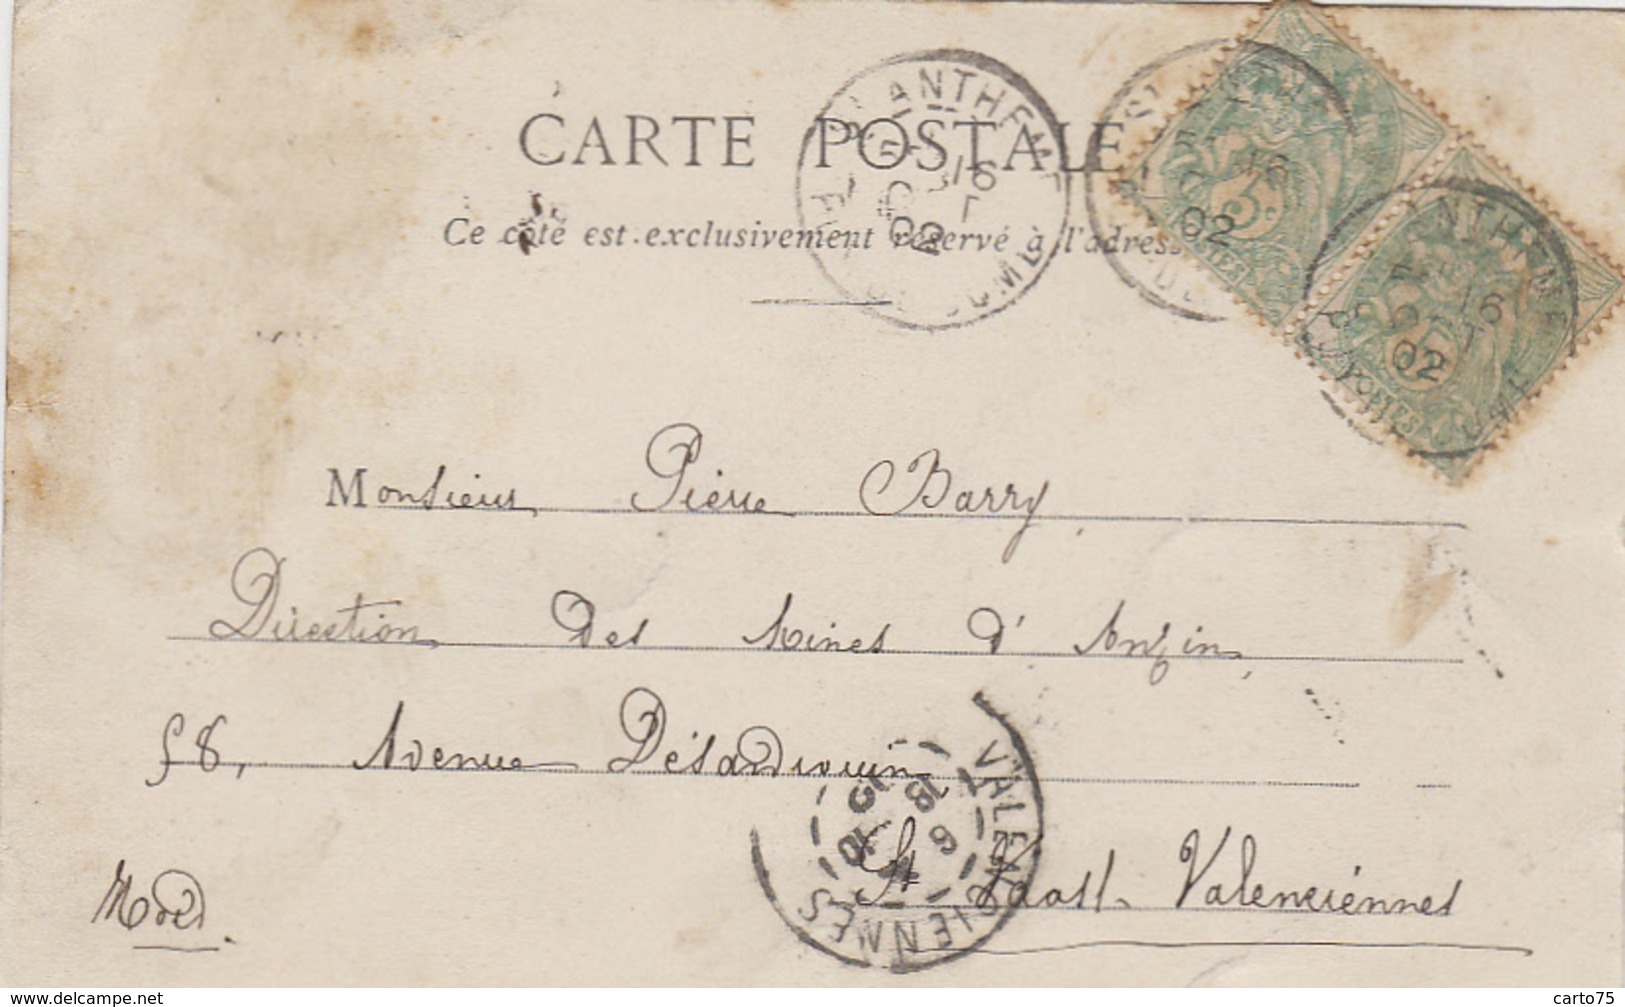 CARTE POSTALE
Ce côté est exclusivement réservé à l'adresse
ANTHEME
16
02
02
5c.
POSTES
ANTHEME
16
02
POSTES
Monsieur Pierre Barry
Direction Des Mines d'Anzin,
58, Avenue Désandrouin
VALENCIENNES
18
St Vaast-Valenciennes
Nord.
www.delcampe.net
carto75